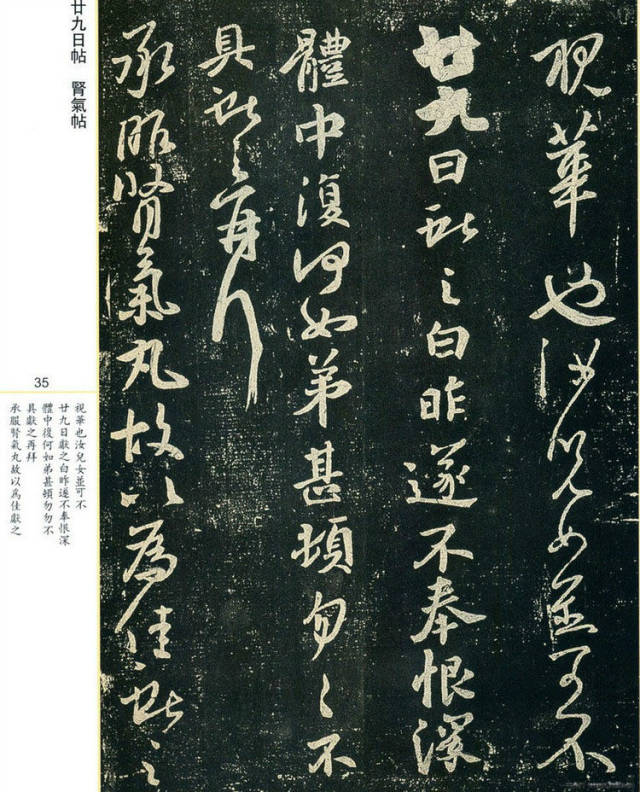 視華也汝兒女並可不
廿九日獻之白昨遂不奉恨深
體中復何如弟甚頓匆匆不
具獻之再拜
承服腎氣丸故以為佳獻之
廿九日帖 腎氣帖
35
視華也汝兒女並可不
廿九日獻之白昨遂不奉恨深
體中復何如弟甚頓匆匆不
具獻之再拜
承服腎氣丸故以為佳獻之